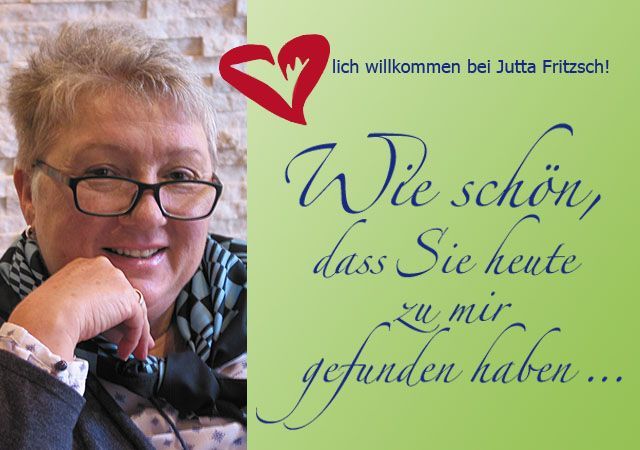 lich willkommen bei Jutta Fritzsch!
Wie schön,
dass Sie heute
zu mir
gefunden haben ...